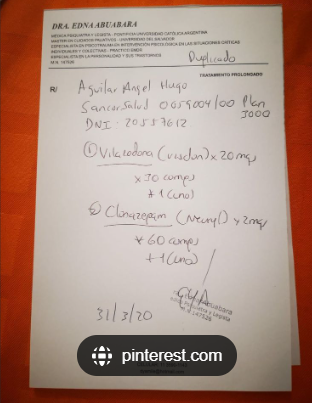 DRA. EDNA ABUABARA
MÉDICA PSIQUIATRA Y LEGISTA - PONTIFICIA UNIVERSIDAD CATÓLICA ARGENTINA
MASTER EN CUIDADOS PALIATIVOS - UNIVERSIDAD DEL SALVADOR
ESPECIALISTA EN PSICOTRAUMA EN INTERVENCIÓN PSICOLÓGICA EN LAS SITUACIONES CRÍTICAS
INDIVIDUALES Y COLECTIVAS
ESPECIALISTA EN LA PERSONALIDAD Y SUS TRASTORNOS
M.N. 147525
Duplicado
TRATAMIENTO PROLONGADO
R/
Aguilar Angel Hugo
Sancor Salud 0059004/00 Plan
3000
DNI: 20557612
① Vilazodona x 20 mgs
x 30 comps
+ 1 (uno)
② Clonazepam x 2mgs
* 60 comps
+ 1 (uno)
Abuabara
31/3/20
pinterest.com